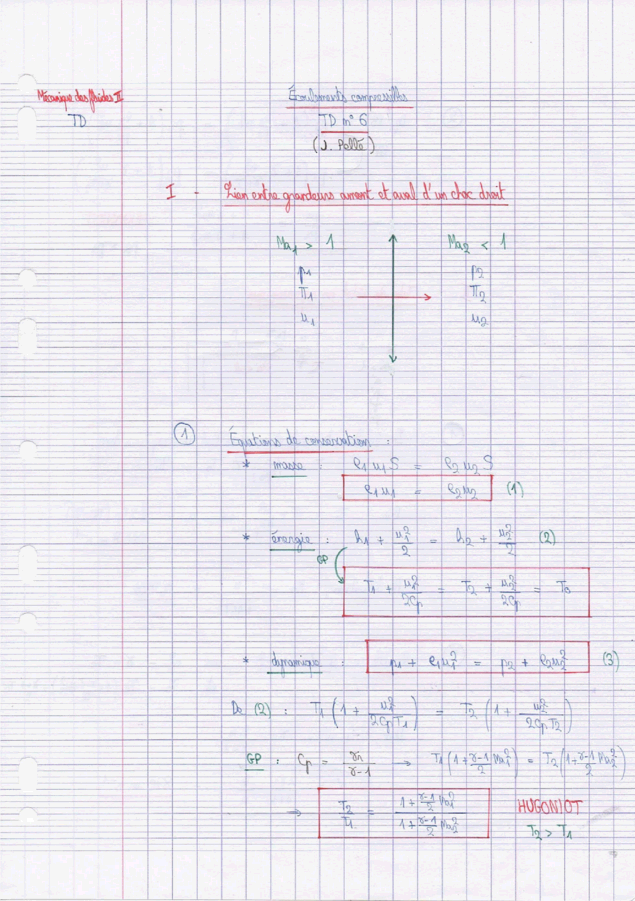 Mécanique des fluides II
Écoulements compressibles
TD
TD n° 6
(J. Pellé)
I - Lien entre grandeurs amont et aval d'un choc droit
Ma₁ > 1
Ma₂ < 1
p₁
p₂
T₁
T₂
u₁
u₂
① Équations de conservation :
* masse : ρ₁u₁S = ρ₂u₂S
ρ₁u₁ = ρ₂u₂ (1)
* énergie : h₁ + u₁²/2 = h₂ + u₂²/2 (2)
GP
T₁ + u₁²/2Cp = T₂ + u₂²/2Cp = T₀
* dynamique p₁ + ρ₁u₁² = p₂ + ρ₂u₂² (3)
De (2) : T₁ (1 + u₁²/2CpT₁) = T₂ (1 + u₂²/2CpT₂)
GP : Cp = γr/γ-1 → T₁(1+γ-1/2 Ma₁²) = T₂(1+γ-1/2 Ma₂²)
→ T₂/T₁ = 1+γ-1/2 Ma₁² / 1+γ-1/2 Ma₂² HUGONIOT
T₂ > T₁